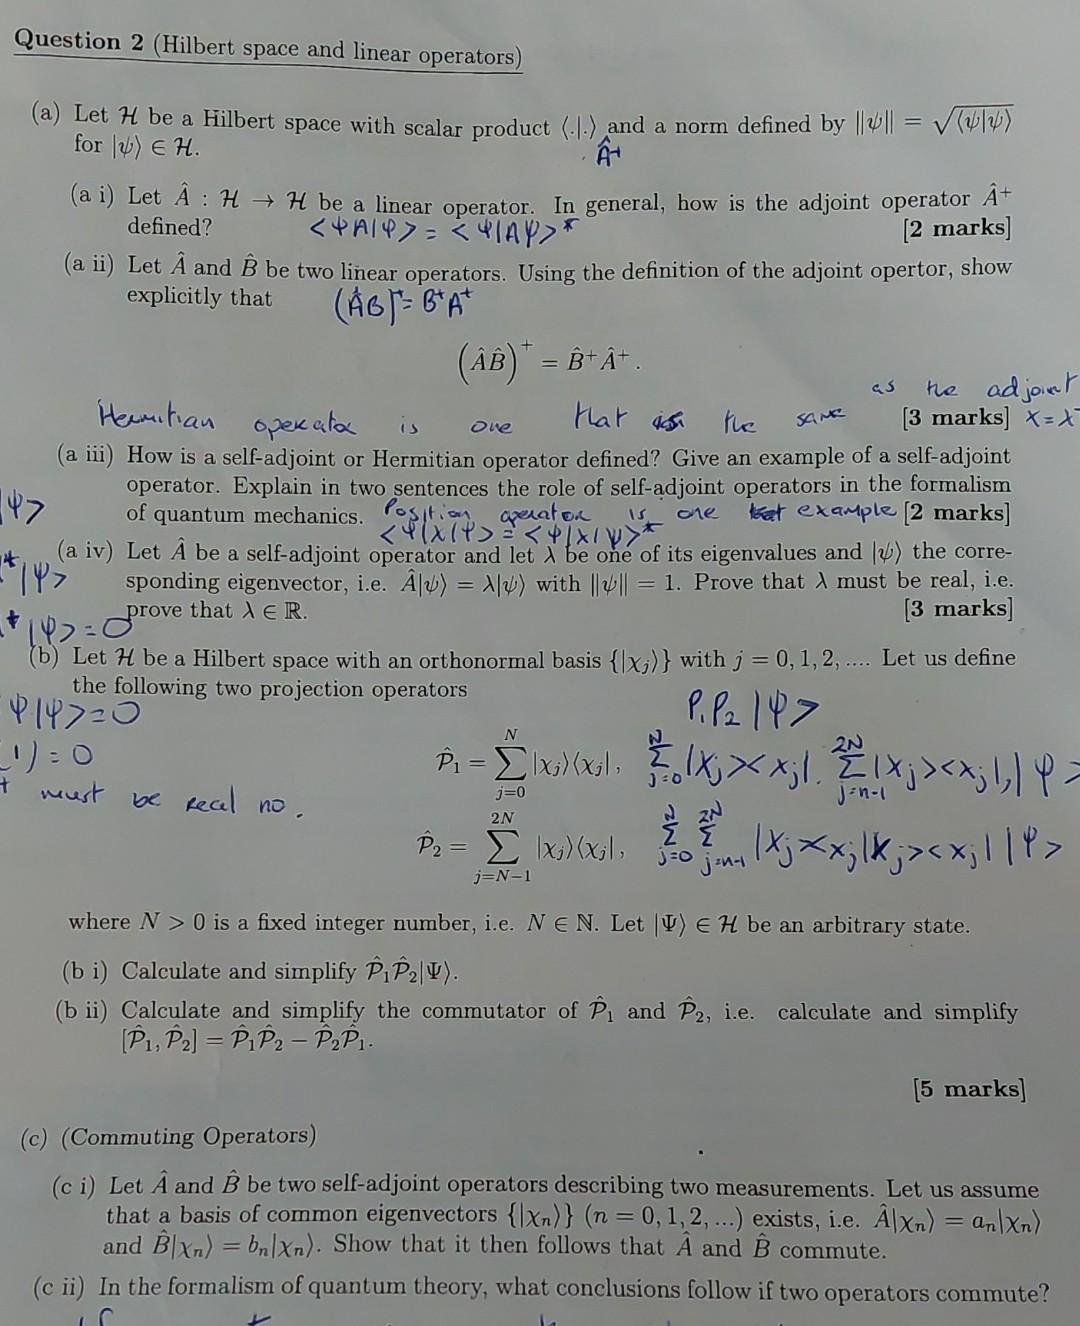 Question 2 (Hilbert space and linear operators)
(a) Let ℋ be a Hilbert space with scalar product ⟨.|.⟩ and a norm defined by ||ψ|| = √⟨ψ|ψ⟩
for |ψ⟩ ∈ ℋ.
Â+
(a i) Let Â : ℋ → ℋ be a linear operator. In general, how is the adjoint operator Â⁺
defined?
<ΨA|φ> = <φ|Aψ>*
[2 marks]
(a ii) Let Â and B̂ be two linear operators. Using the definition of the adjoint opertor, show
explicitly that
(ÂB)⁺ = B⁺A⁺
(ÂB̂)⁺ = B̂⁺Â⁺ .
as the adjoint
Hermitian operator is one that is the same
[3 marks] X = X
(a iii) How is a self-adjoint or Hermitian operator defined? Give an example of a self-adjoint
operator. Explain in two sentences the role of self-adjoint operators in the formalism
|Ψ>
of quantum mechanics.
Position operator is one example
[2 marks]
<φ|x|ψ> = <φ|x|ψ>*
(a iv) Let Â be a self-adjoint operator and let λ be one of its eigenvalues and |ψ⟩ the corre-
*|Ψ>
sponding eigenvector, i.e. Â|ψ⟩ = λ|ψ⟩ with ||ψ|| = 1. Prove that λ must be real, i.e.
prove that λ ∈ ℝ.
[3 marks]
*|Ψ>=0
(b) Let ℋ be a Hilbert space with an orthonormal basis {|χⱼ⟩} with j = 0, 1, 2, .... Let us define
the following two projection operators
Ψ|Ψ>=0
P₁P₂|Ψ>
P̂₁ = ∑_{j=0}^{N} |χⱼ⟩⟨χⱼ|,
∑_{j=0}^{N} |Xⱼ><Xⱼ|. ∑_{j=n-1}^{2N} |Xⱼ><Xⱼ|,|Ψ>
1)=0
must be real no.
P̂₂ = ∑_{j=N−1}^{2N} |χⱼ⟩⟨χⱼ|,
∑_{j=0}^{N} ∑_{j=n-1}^{2N} |Xⱼ><Xⱼ|Xⱼ><Xⱼ||Ψ>
where N > 0 is a fixed integer number, i.e. N ∈ ℕ. Let |Ψ⟩ ∈ ℋ be an arbitrary state.
(b i) Calculate and simplify P̂₁P̂₂|Ψ⟩.
(b ii) Calculate and simplify the commutator of P̂₁ and P̂₂, i.e. calculate and simplify
[P̂₁, P̂₂] = P̂₁P̂₂ − P̂₂P̂₁.
[5 marks]
(c) (Commuting Operators)
(c i) Let Â and B̂ be two self-adjoint operators describing two measurements. Let us assume
that a basis of common eigenvectors {|χₙ⟩} (n = 0, 1, 2, ...) exists, i.e. Â|χₙ⟩ = aₙ|χₙ⟩
and B̂|χₙ⟩ = bₙ|χₙ⟩. Show that it then follows that Â and B̂ commute.
(c ii) In the formalism of quantum theory, what conclusions follow if two operators commute?